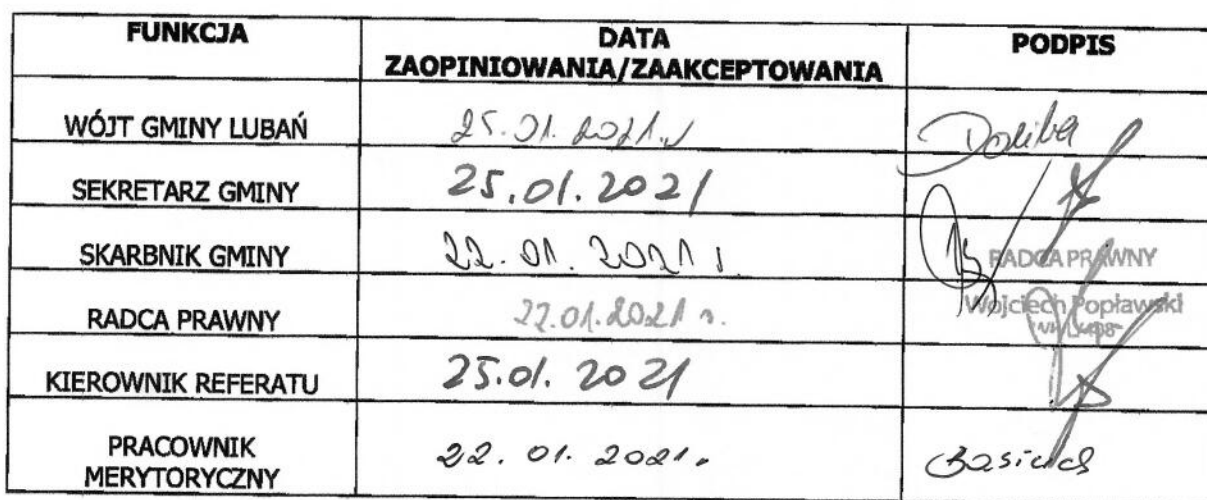 FUNKCJA DATA PODPIS
ZAOPINIOWANIA/ZAAKCEPTOWANIA
WÓJT GMINY LUBAŃ 25.01.2021.
SEKRETARZ GMINY 25.01.2021
SKARBNIK GMINY 22.01.2021 r.
RADCA PRAWNY
RADCA PRAWNY 22.01.2021 r.
Wojciech Popławski
KIEROWNIK REFERATU 25.01.2021
PRACOWNIK
MERYTORYCZNY 22.01.2021.